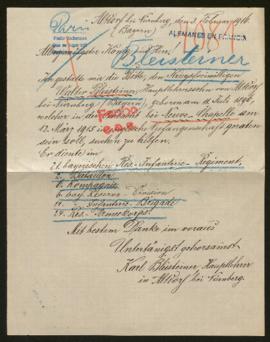 Altdorf bei Nürnberg, den 3. Februar 1916
(Bayern)
ALEMANES EN FRANCIA
Bleisteiner
Ich gestatte mir die Bitte, den Kriegsfreiwilligen
Walter Bleisteiner, Hauptlehrerssohn von Altdorf
bei Nürnberg (Bayern), geboren am 11. Juli 1896,
welcher in der Schlacht bei Neuve Chapelle am
12. März 1915 in Gefangenschaft geraten
sein soll, suchen zu helfen.
Er diente im
21. bayerischen Res.-Infanterie-Regiment,
2. Bataillon
8. Kompagnie
6. bay. Reserve Division
Infanterie-Brigade
Res. Armeecorps.
Mit bestem Danke im voraus
Untertänigst gehorsamst
Karl Bleisteiner Hauptlehrer
in Altdorf bei Nürnberg.